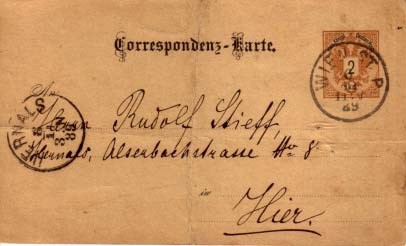 Correspondenz-Karte.
2
WIEN
An
Herrn Rudolf Stieff,
Hernals, Alserbachstrasse No 8
in
Hier.
HERNALS